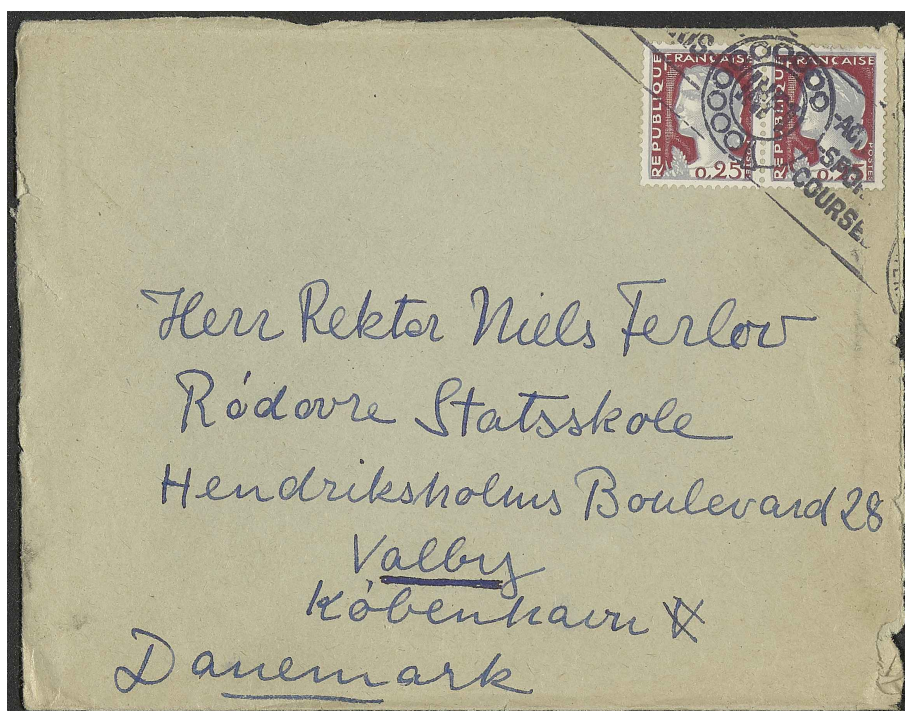 REPUBLIQUE FRANCAISE
0,25
REPUBLIQUE FRANCAISE
POSTES
0,25
COURSE
Herr Rektor Niels Ferlov
Ródovre Statsskole
Hendriksholms Boulevard 28
Valby
København
Danemark